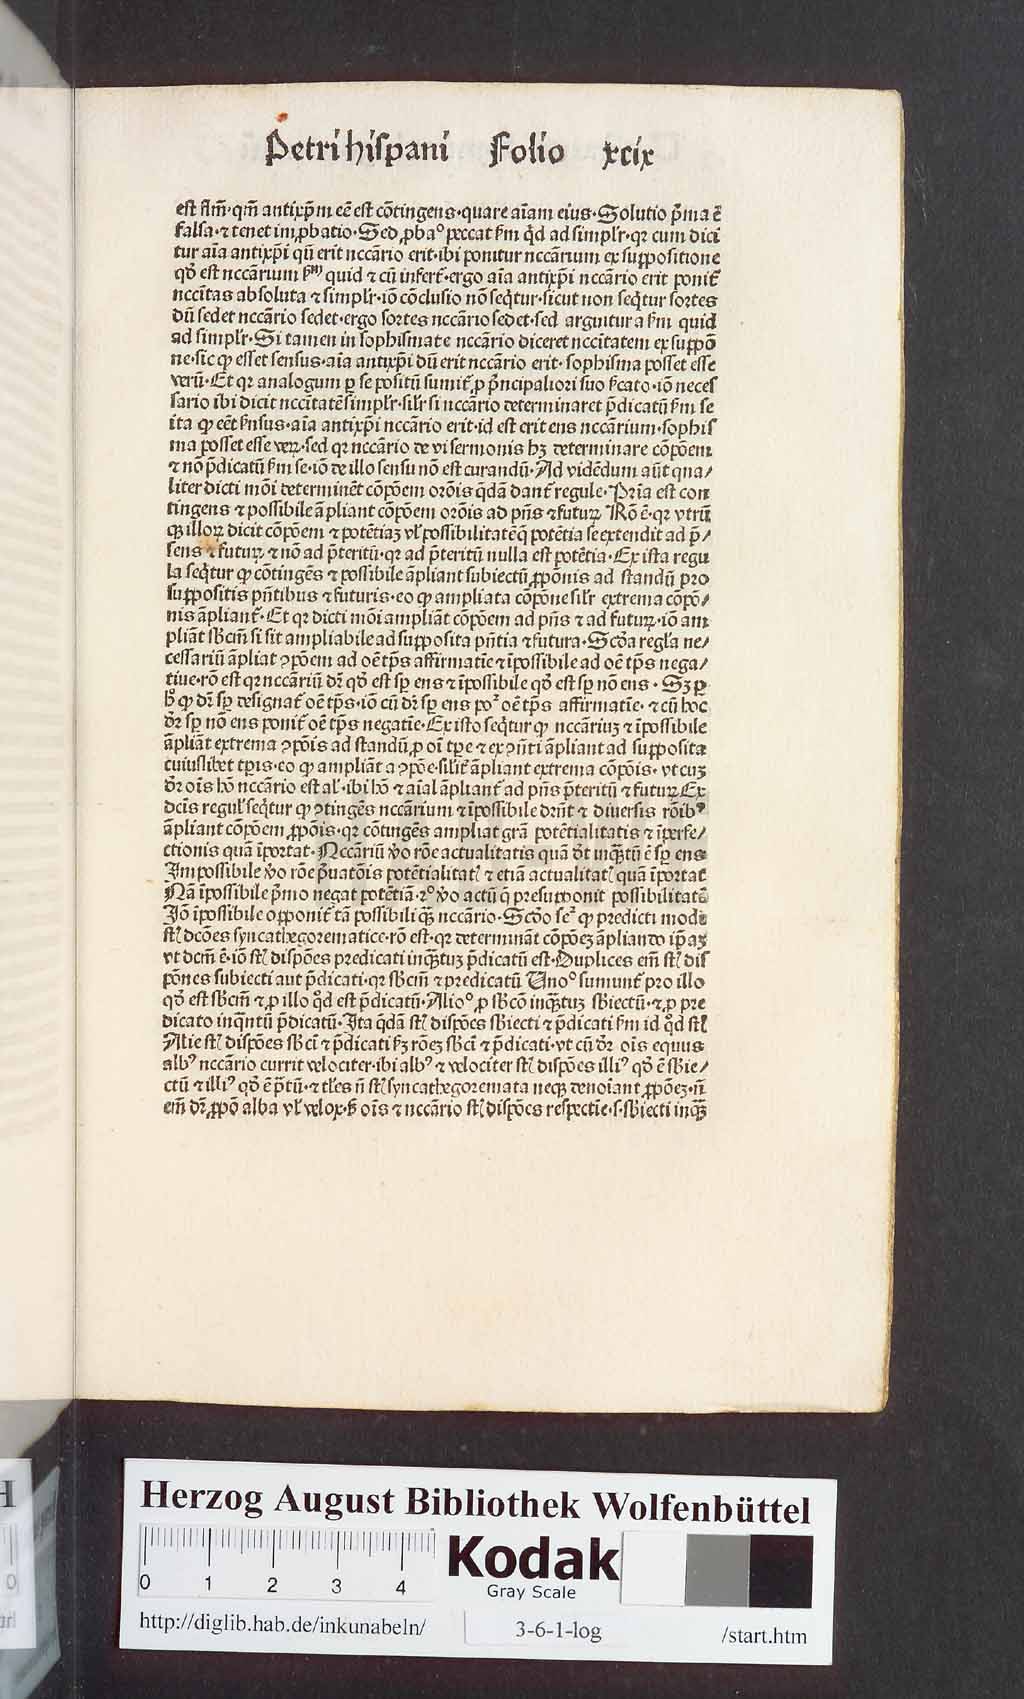 Petri hispani Folio xcix
est flm̄·qm̄ antixp̄m eē est cōtingens·quare aīam eius·Solutio p̄ma ē
falsa·⁊ tenet improbatio·Sed ꝓbaᵒ peccat ẜm q̄d ad simplr̄·qr cum dici
tur aīa antixp̄i qn̄ erit nccārio erit·ibi ponitur nccārium ex suppositione
qd̄ est nccārium ẜm quid ⁊ cū infert̄·ergo aīa antixp̄i nccārio erit ponit̄
nccītas absoluta ⁊ simplr̄·iō cōclusio nō seqr̄tur·sicut non seqr̄tur sortes
dū sedet nccārio sedet·ergo sortes nccārio sedet·sed arguitur a ẜm quid
ad simplr̄·Si tamen in sophismate nccārio diceret nccītatem ex suppō
ne·sic ꝙ esset sensus·aīa antixp̄i dū erit nccārio erit·sophisma posset esse
verū·Et qr analogum ꝑ se positū sumit̄ ꝓ p̄ncipaliori suo ẜcato·iō neces
sario ibi dicit nccītatē simplr̄·silr̄ si nccārio determinaret p̄dicatū ẜm se
ita ꝙ eēt sensus·aīa antixp̄i nccārio erit·id est erit ens nccārium·sophis
ma posset esse veꝝ·sed qr nccārio de vi sermonis hꝫ determinare cōpōem
⁊ nō p̄dicatū ẜm se·iō de illo sensu nō est curandū·Ad vidēdum aūt qua/
liter dicti mōi determinēt cōpōem orōis q̄dā dant̄ regule·Prīa est con
tingens ⁊ possibile āpliant cōpōem orōis ad pn̄s ⁊ futuꝝ Rō ē·qr vtrū
qꝫ illoꝝ dicit cōpōem ⁊ potētiaꝫ vl̄ possibilitatē q̄ potētia se extendit ad p̄/
sens ⁊ futuꝝ ⁊ nō ad p̄teritū·qr ad p̄teritū nulla est potētia·Ex ista regu
la seqr̄tur ꝙ cōtingēs ⁊ possibile āpliant subiectū ꝓpōnis ad standū pro
suppositis pn̄tibus ⁊ futuris·eo ꝙ ampliata cōpōne silr̄ extrema cōpō/
nis āpliant̄·Et qr dicti mōi ampliāt cōpōem ad pn̄s ⁊ ad futuꝝ·iō am
pliāt sb̄cm̄ si sit ampliabile ad supposita pn̄tia ⁊ futura·Scōa regl̄a ne/
cessariū āpliat ꝯpōem ad oē tp̄s affirmatīe ⁊ īpossibile ad oē tp̄s nega/
tiue·rō est qr nccāriū dr̄ qd̄ est sp̄ ens ⁊ īpossibile qd̄ est sp̄ nō ens·Sꝫ ꝑ
h̄ ꝙ dr̄ sp̄ designat̄ oē tp̄s·iō cū dr̄ sp̄ ens poᷣ oē tp̄s affirmatīe·⁊ cū hoc
dr̄ sp̄ nō ens ponit̄ oē tp̄s negatīe·Ex isto seqr̄tur ꝙ nccāriuꝫ ⁊ īpossibile
āpliāt extrema ꝯpōis ad standū ꝓ oī tp̄e ⁊ ex ꝯn̄ti āpliant ad supposita
cuiuslibet tp̄is·eo ꝙ ampliāt a ꝯpōe·silit̄ āpliant extrema cōpōis·vt cuꝫ
dr̄ oīs hō nccārio est al̄·ibi hō ⁊ aīal āpliant̄ ad pn̄s p̄teritū ⁊ futuꝝ Ex
dcīs regul̄ seqr̄tur ꝙ ꝯtingēs nccārium ⁊ īpossibile drn̄t ⁊ diuersis rōibꝰ
āpliant cōpōem ꝓpōis·qr cōtingēs ampliat grā potētialitatis ⁊ īperfe/
ctionis quā īportat·Nccāriū v̄o rōe actualitatis quā dr̄t inqꝫtū ē sp̄ ens
Impossibile v̄o rōe p̄uatōis potētialitatꝭ ⁊ etiā actualitatꝭ quā īportat
Nā īpossibile p̄mo negat potētiā·rᵒ v̄o actū q̄ presupponit possibilitatē
Jō īpossibile opponit̄ tā possibili qꝫ nccārio·Scōo seᷣ ꝙ predicti modi
stꝭ dcōes syncathegorematice·rō est·qr determināt cōpōeꝫ āpliando ip̄aꝫ
vt dcm̄ ē·iō stꝭ dispōes predicati inqꝫtuꝫ p̄dicatū est·Duplices em̄ stꝭ dis
pōnes subiecti aut p̄dicati·qr sb̄cm̄ ⁊ predicatū Unoᵒ sumunt̄ pro illo
qd̄ est sb̄cm̄ ⁊ ꝓ illo q̄d est p̄dicatū·Alioᵒ ꝓ sb̄cō inqꝫtuꝫ sb̄iectū·⁊ ꝓ pre
dicato inqꝫntū p̄dicatū·Ita q̄dā stꝭ dispōes sb̄iecti ⁊ p̄dicati ẜm id q̄d stꝭ
Alie stꝭ dispōes sb̄ci ⁊ p̄dicati ẜꝫ rōeꝫ sb̄ci ⁊ p̄dicati·vt cū dr̄ oīs equus
albꝰ nccārio currit velociter·ibi albꝰ ⁊ velociter stꝭ dispōes illiꝰ qd̄ ē sb̄ie/
ctū ⁊ illiꝰ qd̄ ē p̄tū·⁊ tl̄es n̄ stꝭ syncathegoremata neqꝫ denoīant ꝓpōeꝫ·n̄
em̄ dr̄ ꝓpō alba vl̄ velox·ẜ oīs ⁊ nccārio stꝭ dispōes respectīe·s·sb̄iecti inqꝫ
Herzog August Bibliothek Wolfenbüttel
0 1 2 3 4
Kodak
Gray Scale
http://diglib.hab.de/inkunabeln/
3-6-1-log
/start.htm